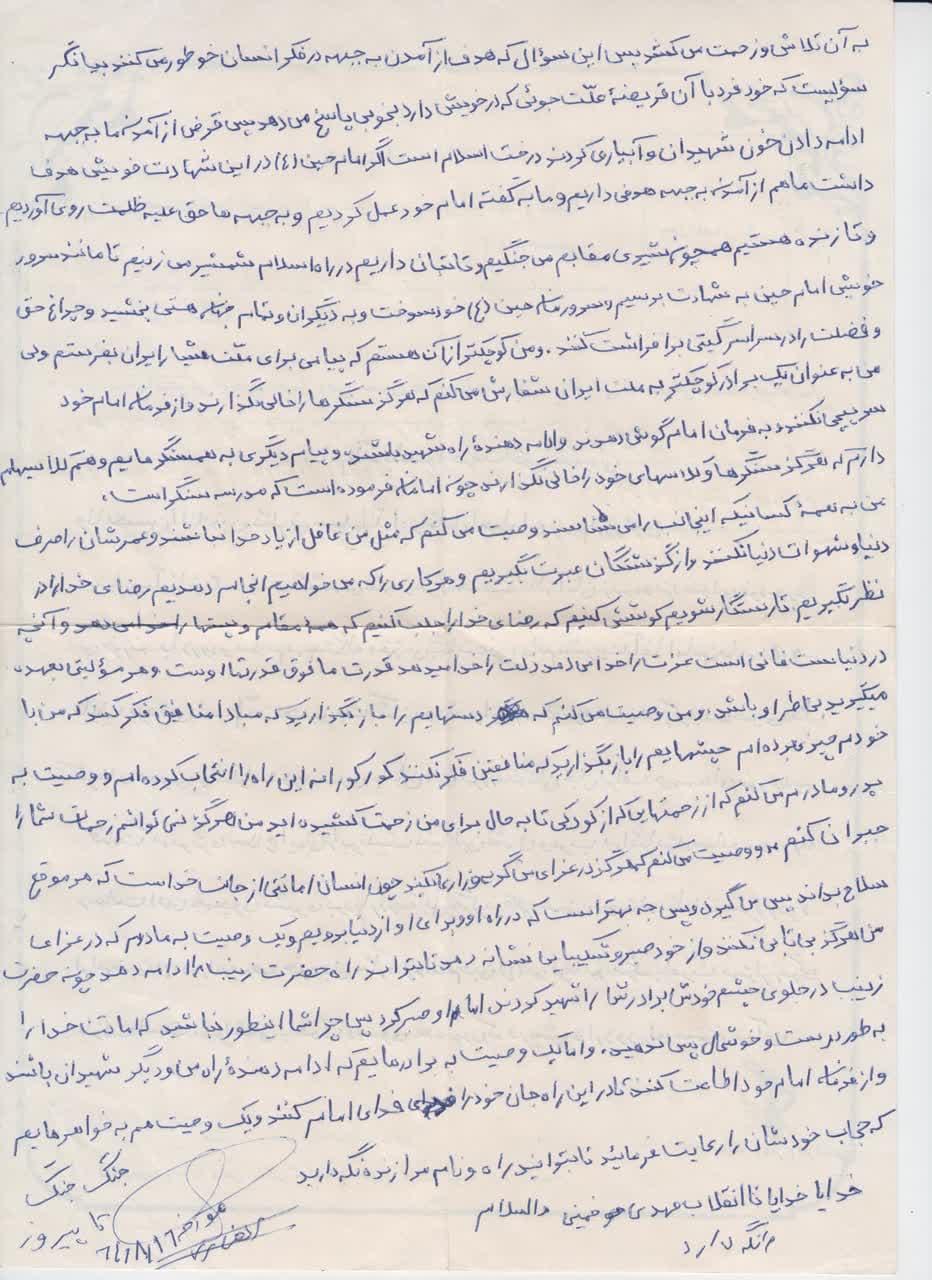 به آن تلاش و زحمت می کشد پس این سؤال که هدف از آمدن به جبهه در فکر انسان خوطور می کنند بیانگر
سؤلیست که خود فرد با آن قریضهٔ علّت جوئی که در خویش دارد بخوبی پاسخ می دهد پس قرض از آمدن ما به جبهه
ادامه دادن خون شهیدان و آبیاری کردند درخت اسلام است اگر امام حسین (ع) در این شهادت خویش هدف
داشت ما هم از آمدن به جبهه هدفی داریم و ما به گفته امام خود عمل کردیم و به جبهه ها حق علیه ظلمت روی آوردیم
و تا زنده هستیم همچون شیری مقابم می جنگیم و تا جان داریم در راه اسلام شمشیر می زنیم تا مانند سرور
خویش امام حسین به شهادت برسیم و سرورمان حسین (ع) خود سوخت و به دیگران و تمام جهان هستی بخشید و چراغ حق
و فضلت را در سراسر گیتی برافراشت کنند. و من کوچکتر از آن هستم که پیامی برای ملّت هشیار ایران بفرستم ولی
می به عنوان یک برادر کوچکتر به ملت ایران سفارش می کنم که هرگز سنگرها را خالی نگذارند و از فرمان امام خود
سرپیچی نکنند و به فرمان امام گوش دهند و ادامه دهندهٔ راه شهید باشند و پیام دیگری به همسنگرهایم و هم کلاسیهایم
دارم که هرگز سنگرها و کلاسهای خود را خالی نگذارند چون امامان فرموده است که مدرسه سنگر است.
من به همهٔ کسانیکه اینجانب را می شناسند وصیت می کنم که مثل من غافل از یاد خدا نباشند و عمرشان را صرف
دنیا و شهوات دنیا نکنند و از گذشتگان عبرت بگیریم و هر کاری را که می خواهیم انجام دهیم رضای خدا را در
نظر بگیریم تا رستگار شویم کوشش کنیم که رضای خدا را جلب کنیم که همه مقام و پستها را خدا می دهد و آنچه
در دنیاست فانی است عزت را خدا می دهد ذلت را خدا میدهد قدرت ما فوق قدرتها اوست و هر مسؤلیتی بعهده
میگیرید بخاطر او باشد. و من وصیت می کنم که دستهایم را باز بگذارید که مبادا منافق فکر کند که من با
خودم چیز برده ام چشمهایم را باز بگذارید که منافقین فکر نکنند کورکورانه این راه را انتخاب کرده ام و وصیت به
پدر و مادرم می کنم که از زحمتهایی که از کودکی تا به حال برای من زحمت کشیده اید من هرگز نمی توانم زحمات شما را
جبران کنم و وصیت می کنم که هرگز در عزای من گریه و زاری نکنند چون انسان امانتی از جانب خداست که هر موقع
صلاح بداند پس می گیرد و پس چه بهتر است که در راه او و برای او از دنیا برویم و یک وصیت به مادرم که در عزای
من هرگز بی تابی نکنند و از خود صبر و شکیبایی نشانه دهد تا بتواند راه حضرت زینب را ادامه دهد چون حضرت
زینب در جلوی چشم خودش برادرش را شهید کردند اما او صبر کرد پس چرا شما اینطور نباشید که امانت خدا را
به طور درست و خوشحال پس ندهید. و اما یک وصیت به برادرهایم که ادامه دهندهٔ راه من و دیگر شهیدان باشند
و از فرمان امام خود اطاعت کنند تا در این راه جان خود را فدای امام کنند و یک وصیت هم به خواهرهایم
که حجاب خودشان را رعایت فرمائید تا بتوانید راه و نام مرا زنده نگه دارید
خدایا خدایا تا انقلاب مهدی خمینی والسلام
را نگه دارد
جنگ جنگ
تا پیروز